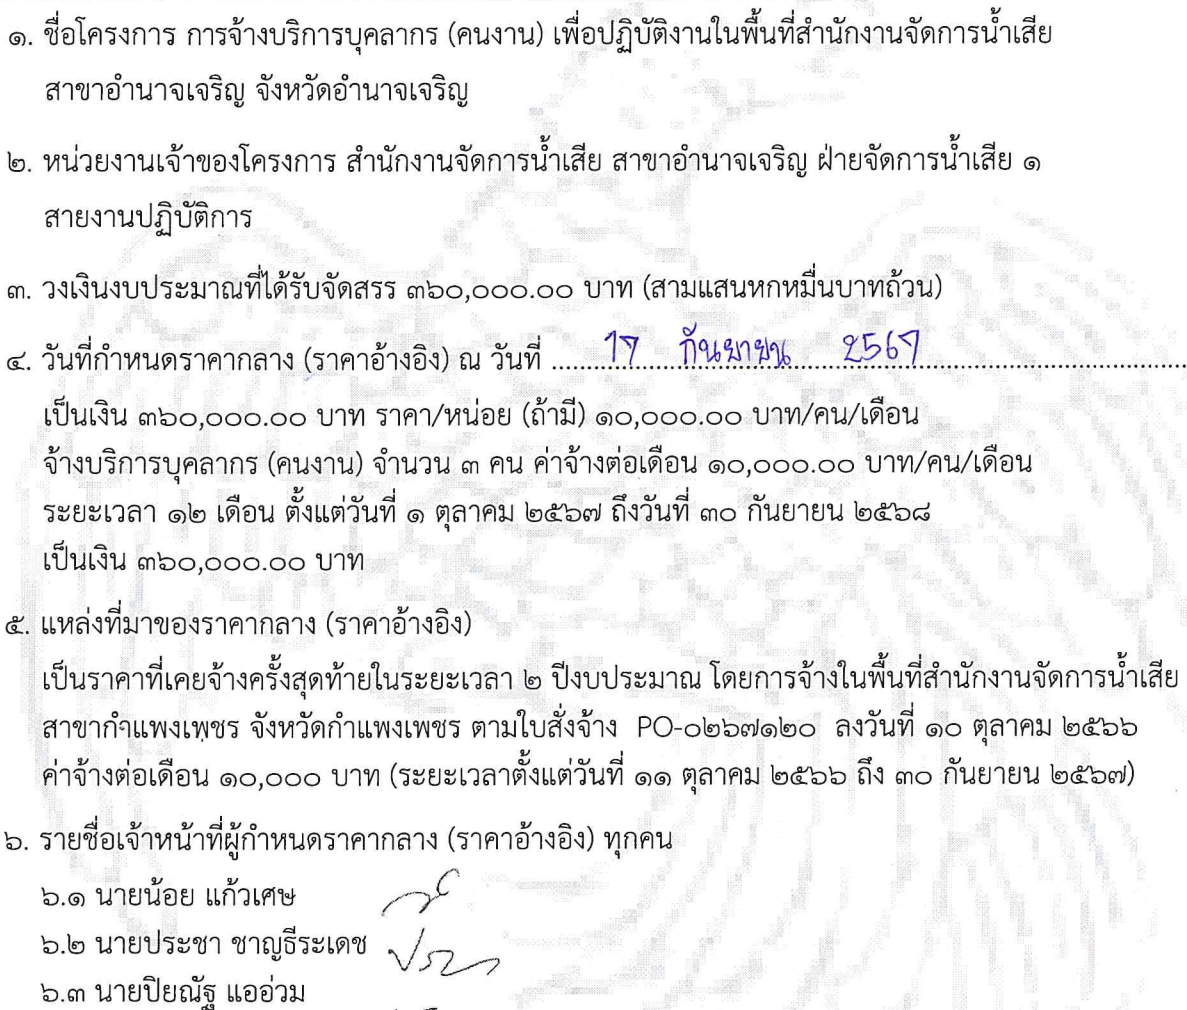 ๑. ชื่อโครงการ การจ้างบริการบุคลากร (คนงาน) เพื่อปฏิบัติงานในพื้นที่สำนักงานจัดการน้ำเสีย
สาขาอำนาจเจริญ จังหวัดอำนาจเจริญ
๒. หน่วยงานเจ้าของโครงการ สำนักงานจัดการน้ำเสีย สาขาอำนาจเจริญ ฝ่ายจัดการน้ำเสีย ๑
สายงานปฏิบัติการ
๓. วงเงินงบประมาณที่ได้รับจัดสรร ๓๖๐,๐๐๐.๐๐ บาท (สามแสนหกหมื่นบาทถ้วน)
๔. วันที่กำหนดราคากลาง (ราคาอ้างอิง) ณ วันที่ 17 กันยายน 2567
เป็นเงิน ๓๖๐,๐๐๐.๐๐ บาท ราคา/หน่อย (ถ้ามี) ๑๐,๐๐๐.๐๐ บาท/คน/เดือน
จ้างบริการบุคลากร (คนงาน) จำนวน ๓ คน ค่าจ้างต่อเดือน ๑๐,๐๐๐.๐๐ บาท/คน/เดือน
ระยะเวลา ๑๒ เดือน ตั้งแต่วันที่ ๑ ตุลาคม ๒๕๖๗ ถึงวันที่ ๓๐ กันยายน ๒๕๖๘
เป็นเงิน ๓๖๐,๐๐๐.๐๐ บาท
๕. แหล่งที่มาของราคากลาง (ราคาอ้างอิง)
เป็นราคาที่เคยจ้างครั้งสุดท้ายในระยะเวลา ๒ ปีงบประมาณ โดยการจ้างในพื้นที่สำนักงานจัดการน้ำเสีย
สาขากำแพงเพชร จังหวัดกำแพงเพชร ตามใบสั่งจ้าง PO-๐๒๖๗๑๒๐ ลงวันที่ ๑๐ ตุลาคม ๒๕๖๖
ค่าจ้างต่อเดือน ๑๐,๐๐๐ บาท (ระยะเวลาตั้งแต่วันที่ ๑๑ ตุลาคม ๒๕๖๖ ถึง ๓๐ กันยายน ๒๕๖๗)
๖. รายชื่อเจ้าหน้าที่ผู้กำหนดราคากลาง (ราคาอ้างอิง) ทุกคน
๖.๑ นายน้อย แก้วเศษ
๖.๒ นายประชา ชาญธีระเดช
๖.๓ นายปิยณัฐ แออ่วม